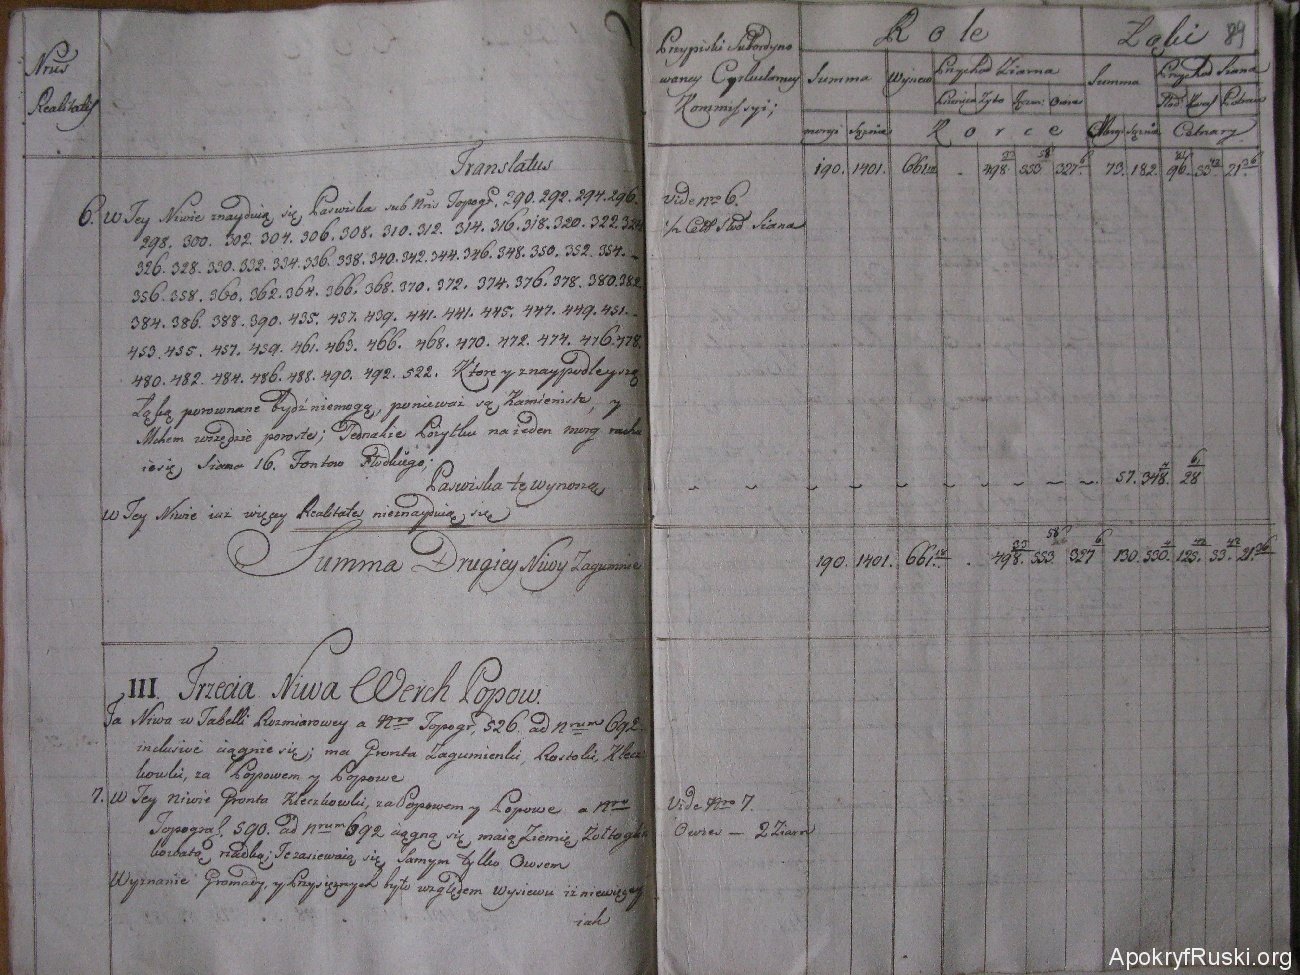 Nrus
Realitatis
Translatus
6. W Tey Niwie znayduią się Paswiska sub Nris Topogr. 290. 292. 294. 296.
298. 300. 302. 304. 306. 308. 310. 312. 314. 316. 318. 320. 322. 324.
326. 328. 330. 332. 334. 336. 338. 340. 342. 344. 346. 348. 350. 352. 354.
356. 358. 360. 362. 364. 366. 368. 370. 372. 374. 376. 378. 380. 382.
384. 386. 388. 390. 435. 437. 439. 441. 441. 445. 447. 449. 451.
453. 455. 457. 459. 461. 463. 466. 468. 470. 472. 474. 476. 478.
480. 482. 484. 486. 488. 490. 492. 522. Ktore y znaypodleyszą
Łąką porownane bydź niemogą, ponieważ są Kamieniste, y
Mchem wszędzie porosłe; Jednakże Pożytku na ieden morg rachu
ie się Siana 16. Fontow Słodkiego;
Paswiska te wynoszą
W Tey Niwie iuż więcey Realitates nieznayduią się
Summa Drugiey Niwy Zagumnie
III. Trzecia Niwa Werch Popow.
Ta Niwa w Tabelli Rozmiarowey a Nro Topogr. 526. ad Nrum 692.
inclusive ciągnie się; ma Gronta Zagumienki, Rostoki, Klecz
kowski, za Popowem y Popowe
7. W Tey Niwie Gronta Kleczkowski, za Popowem y Popowe a Nro
Topogral. 590. ad Nrum 692 ciągną się, maią Ziemię Żołto gli
kowatą rzadką; Te zasiewaią się Samym tylko Owsem
Wyznanie Gromady, y Przysięznych było względem wysiewu iż niewięcey
iak
Przypiski Subordyno
waney Cyrkularney
Kommissyi;
Role
Łąki 89
Summa Wysiew Przychod Ziarna Summa Przychod Siana
Pszenica Żyto Jęczm: Owsa Słod. Kwas. Potraw
morgi Sążnie Korce Morgi Sążnie Cetnary
190. 1401. 661 . 498. 553 327 6 73. 182. 96 33 42 21 36
vide Nro 6.
½ Cett Słod Siana
57. 348. 28
190. 1401. 661 18 . 498. 553 327 6 130. 530. 125. 33. 42 21 36
vide Nro 7.
Owies — 2 Ziarn
ApokryfRuski.org